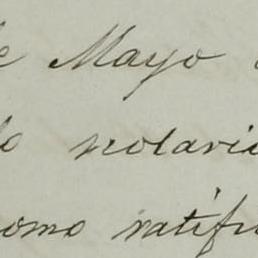 e Mayo
lo notaria
omo ratifi